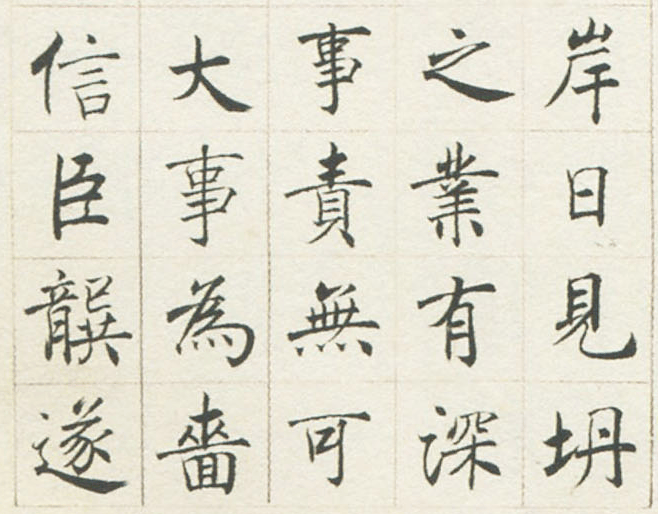 岸日見坍
之業有深
事責無可
大事為嗇
信臣龔遂